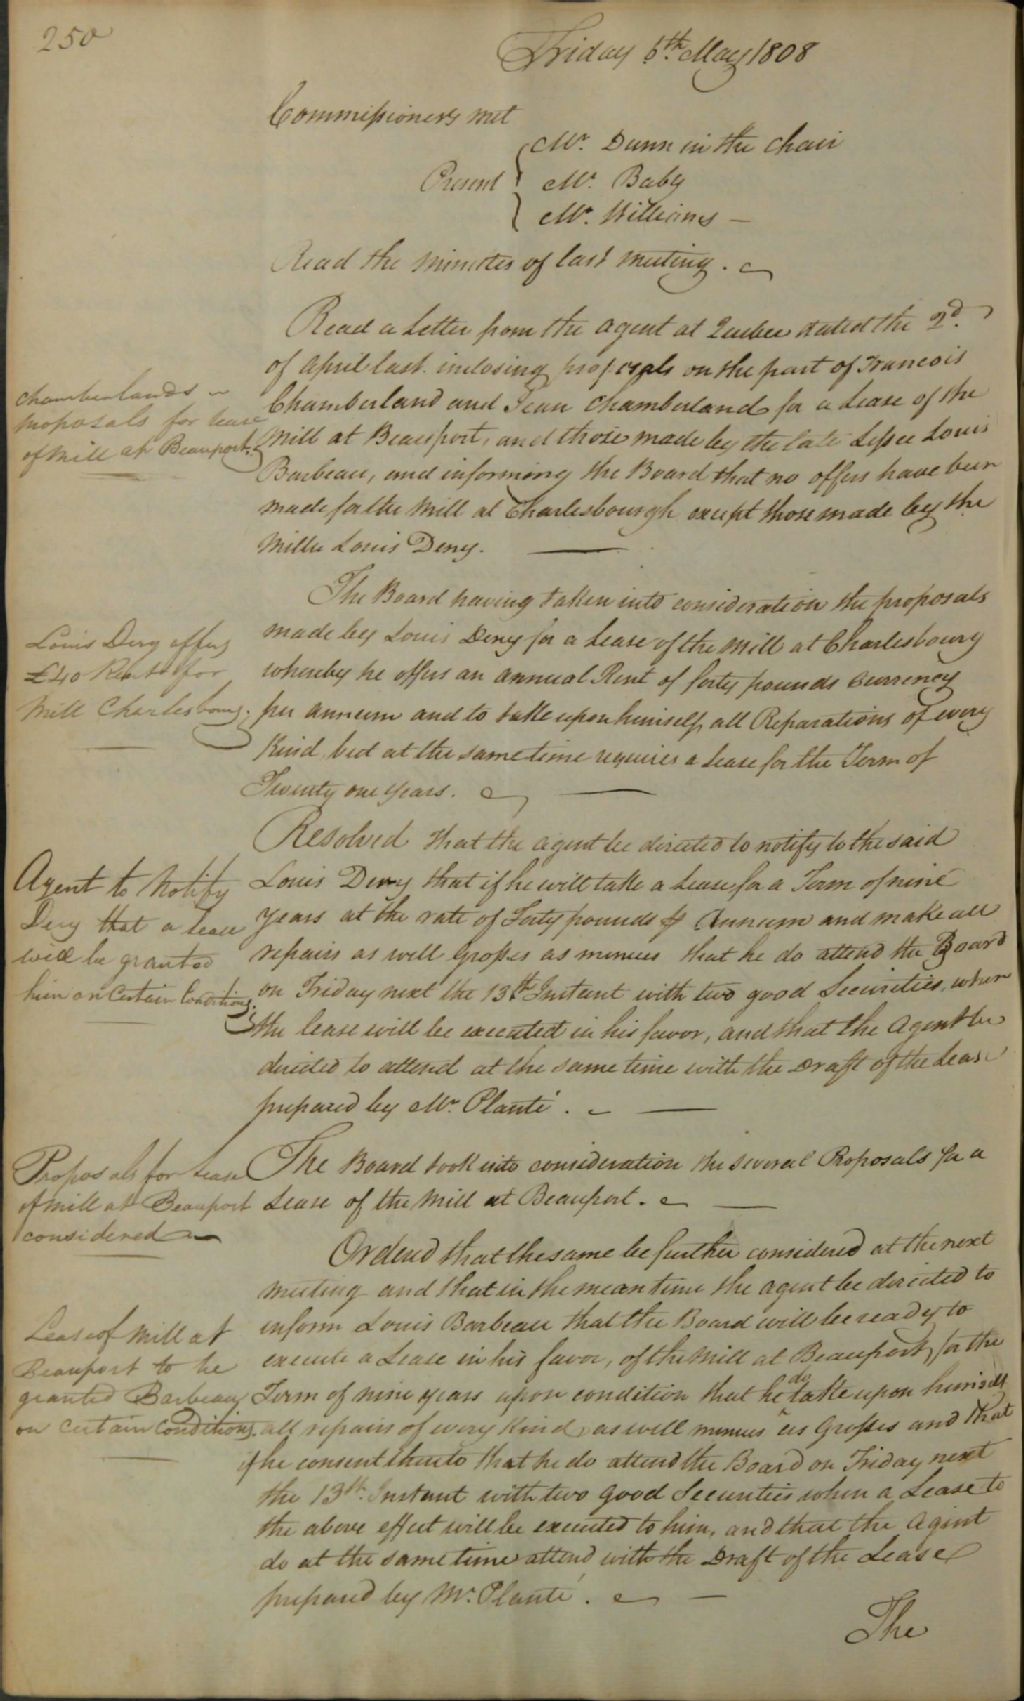 250
Friday 6th May 1808
Commissioners met
Mr. Dunn in the Chair
Present
Mr. Baby
Mr. Williams —
Read the Minutes of last meeting.
Read a Letter from the Agent at Quebec dated the 2d.
of April last inclosing proposals on the part of Francois
Chamberlands
proposals for lease
of Mill at Beauport.
Chamberland and Jean Chamberland for a Lease of the
Mill at Beauport, and those made by the late Lessee Louis
Barbeau, and informing the Board that no offers have been
made for the Mill at Charlesbourgh except those made by the
Miller Louis Dery. —
The Board having taken into consideration the proposals
made by Louis Dery for a Lease of the Mill at Charlesbourg
Louis Dery offers
£40 Rent for
Mill Charlesbourg.
whereby he offers an annual Rent of forty pounds Currency
per annum and to take upon himself all Reparations of every
Kind, but at the same time requires a Lease for the Term of
Twenty one years. —
Resolved that the Agent be directed to notify to the said
Agent to Notify
Dery that a lease
will be granted
him on Certain Conditions.
Louis Dery that if he will take a Lease for a Term of nine
years at the rate of Forty pounds ⅌ Annum and make all
repairs as well Grosses as menues that he do attend the Board
on Friday next the 13th Instant with two good Securities, when
the lease will be executed in his favor, and that the Agent be
directed to attend at the same time with the Draft of the Lease
prepared by Mr. Planté. —
Proposals for Lease
of mill at Beauport
considered
The Board took into consideration the several Proposals for a
Lease of the Mill at Beauport. —
Ordered that the same be further considered at the next
meeting and that in the mean time the Agent be directed to
inform Louis Barbeau that the Board will be ready to
Lease of Mill at
Beauport to be
granted Barbeau
on certain Conditions.
execute a Lease in his favor, of the Mill at Beauport, for the
Term of nine years upon condition that he do take upon himself
all repairs of every Kind, as well menues as Grosses and that
if he consent thereto that he do attend the Board on Friday next
the 13th. Instant with two good Securities when a Lease to
the above effect will be executed to him, and that the Agent
do at the same time attend with the Draft of the Lease
prepared by Mr. Planté. —
The